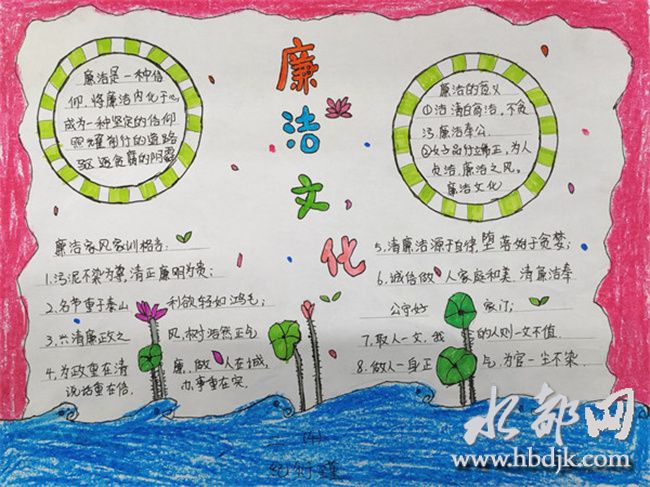 廉洁文化
廉洁是一种信
仰.将廉洁内化于心
成为一种坚定的信仰
照耀前行的道路
驱逐贪腐的阴霾
廉洁的意义
①洁:清白高洁,不贪
污.廉洁奉公.
②女子品行端正,为人
贞洁.廉洁之风.
廉洁文化
廉洁家风家训格言:
1.污泥不染为尊,清正廉明为贵;
2.名节重于泰山 利欲轻如鸿毛;
3.兴清廉政之 风,树浩然正气
4.为政重在清 廉,做人在诚,
说话重在信. 办事重在实.
5.清廉洁源于自律,堕落始于贪婪;
6.诚信做人家庭和美.清廉洁奉
公守好 家门;
7.取人一文,我 的人则一文不值.
8.做人一身正 气,为官一尘不染.
水部网
www.hbdjk.com